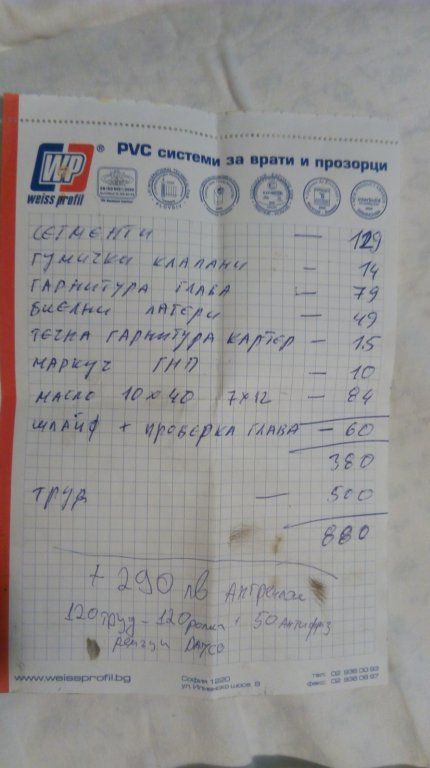 WP®
weiss profil
PVC системи за врати и прозорци
СЕГМЕНТИ — 129
ГУМИЧКИ КЛАПАНИ — 14
ГАРНИТУРА ГЛАВА — 79
БИЕЛНИ ЛАГЕРИ — 49
ТЕЧНА ГАРНИТУРА КАРТЕР — 15
МАРКУЧ ГНП — 10
МАСЛО 10х40 7х12 — 84
ШЛАЙФ + ПРОВЕРКА ГЛАВА — 60
380
ТРУД — 500
880
+ 290 лв Ангренаж
120 труд - 120 ролка + 50 Антифриз
ремъци DAYCO
www.weissprofil.bg
София 1220
ул. Илиянско шосе 8
тел. 02 936 00 93
факс: 02 936 08 97